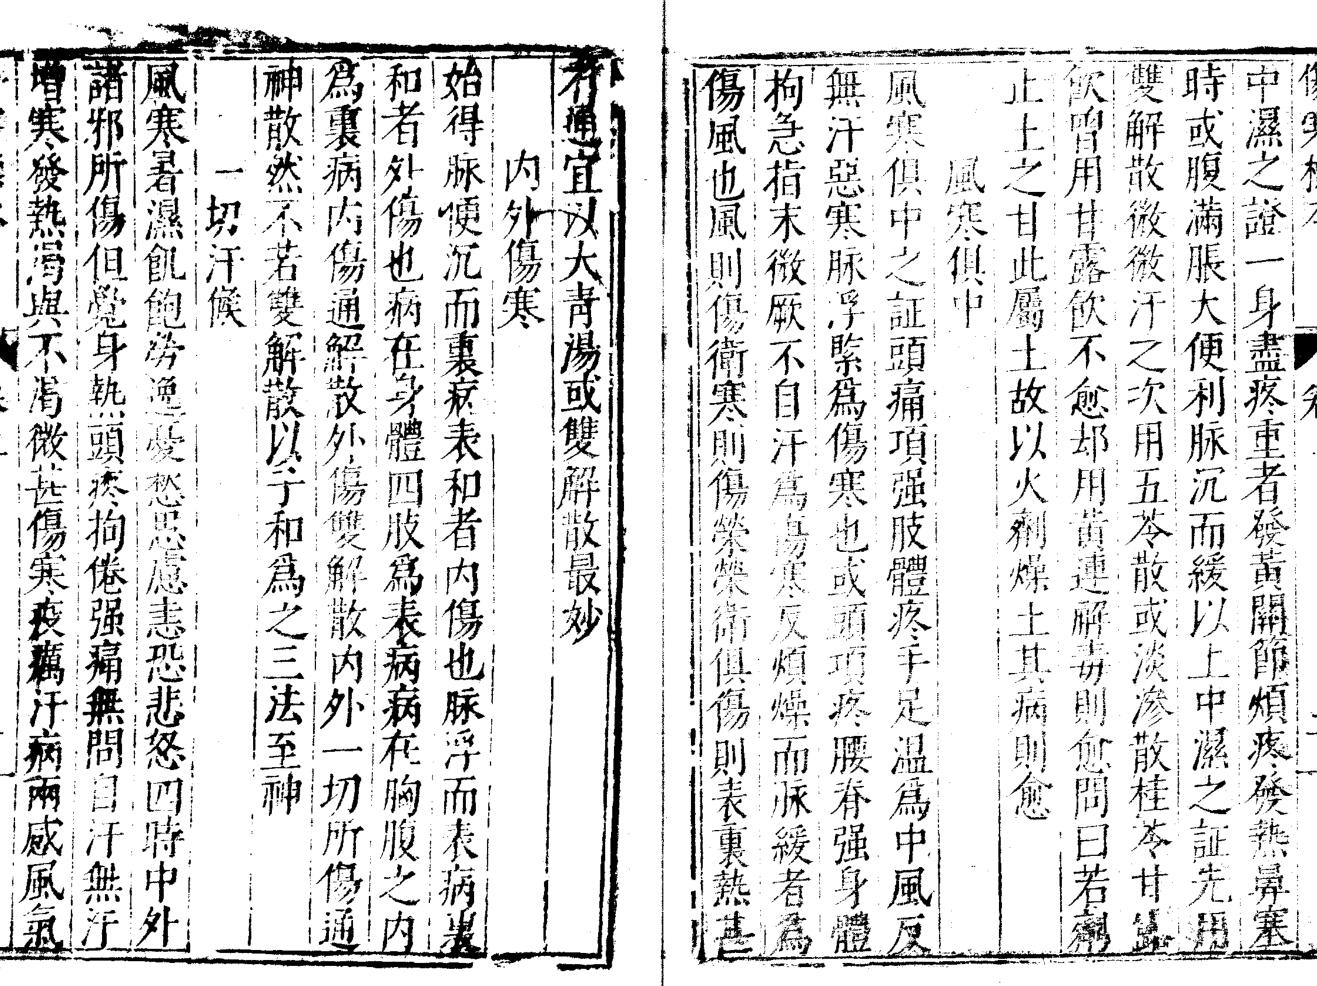 中濕之證一身盡疼重者發黃關節煩疼發熱鼻塞
時或腹滿脹大便利脉沉而緩以上中濕之証先用
雙解散微微汗之次用五苓散或淡滲散桂苓甘露
飲曾用甘露飲不愈却用黃連解毒則愈問曰若劑
止土之甘此屬土故以火劑燥土其病則愈
風寒俱中
風寒俱中之証頭痛項强肢體疼手足温爲中風反
無汗惡寒脉浮緊爲傷寒也或頭項疼腰脊强身體
拘急指末微厥不自汗爲傷寒反煩燥而脉緩者爲
傷風也風則傷衛寒則傷榮榮衛俱傷則表裏熱甚
不通宜以大青湯或雙解散最妙
内外傷寒
始得脉便沉而裏病表和者内傷也脉浮而表病裏
和者外傷也病在身體四肢爲表病病在胸腹之内
爲裏病内傷通解散外傷雙解散内外一切所傷通
神散然不若雙解散以子和爲之三法至神
一切汗候
風寒暑濕飢飽勞逸憂愁思慮恚恐悲怒四時中外
諸邪所傷但覺身熱頭疼拘倦强痛無問自汗無汗
增寒發熱渴與不渴微甚傷寒疫癘汗病兩感風氣